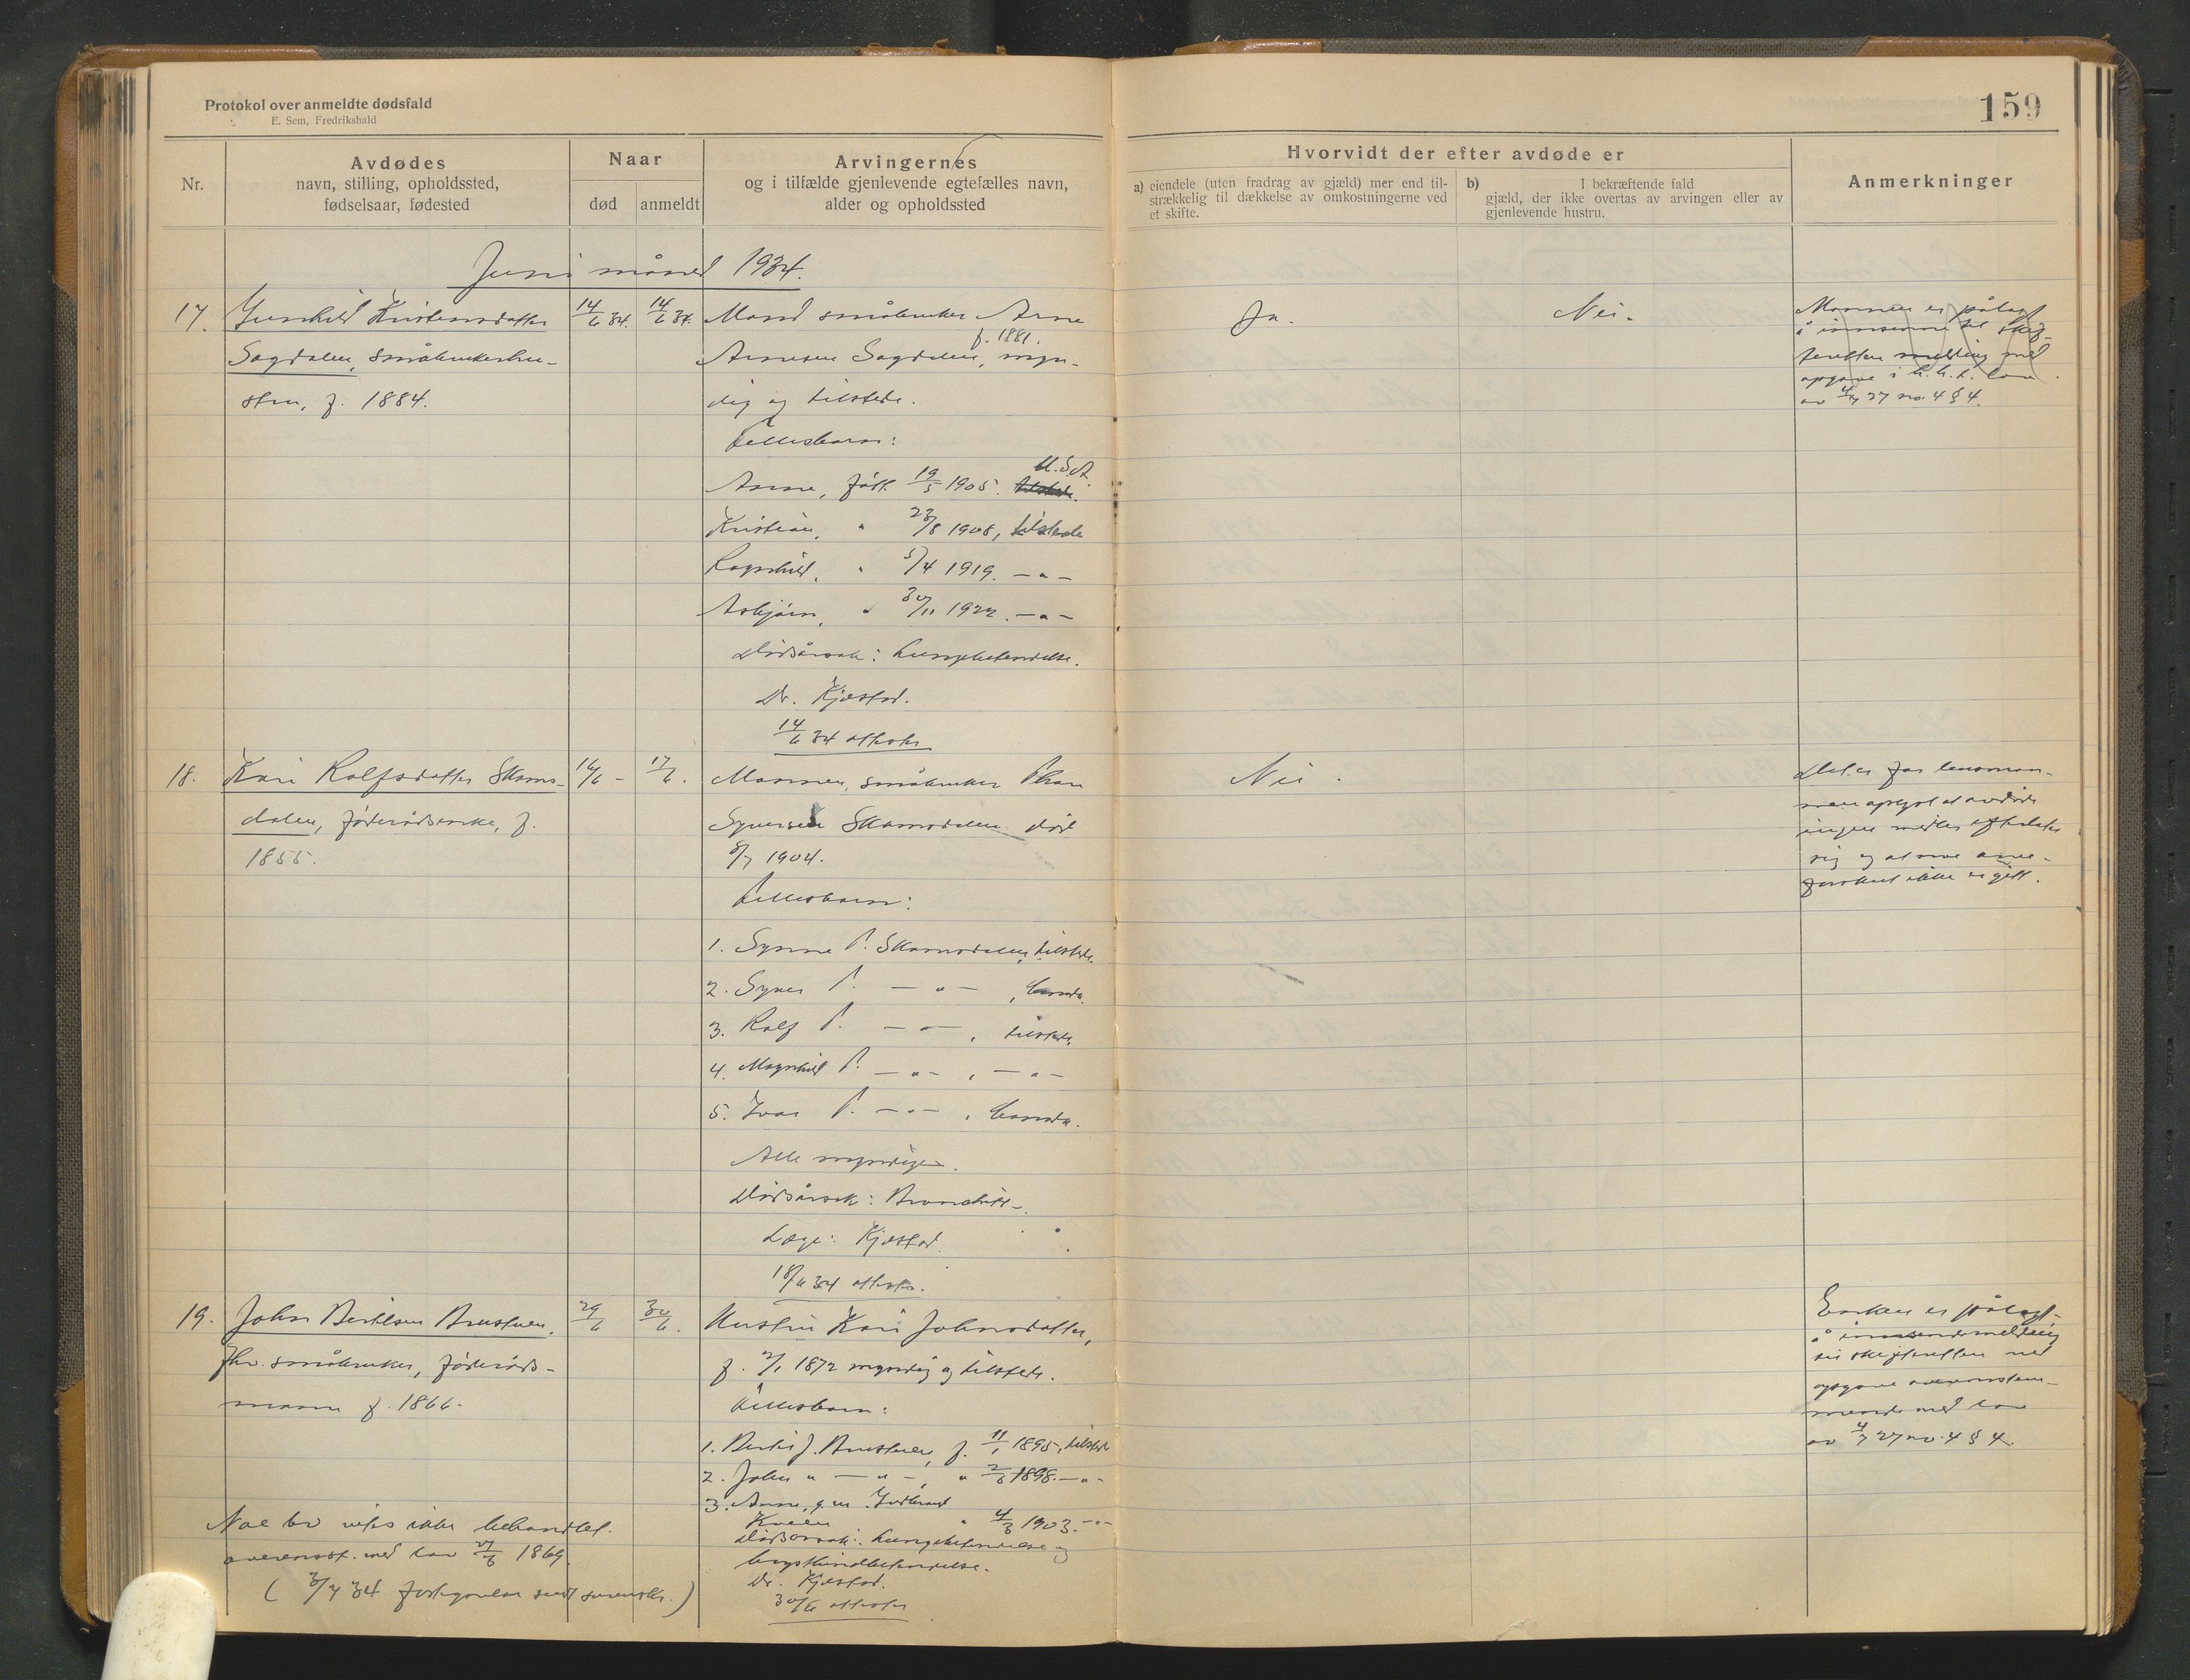 Protokol over anmeldte dødsfald
E. Sem, Fredrikshald
159
Nr.
Avdødes
navn, stilling, opholdssted,
fødselsaar, fødested
Naar
død
anmeldt
Arvingernes
og i tilfælde gjenlevende egtefælles navn,
alder og opholdssted
Hvorvidt der efter avdøde er
a) eiendele (uten fradrag av gjæld) mer end til-
strækkelig til dækkelse av omkostningerne ved
et skifte.
b) I bekræftende fald
gjæld, der ikke overtas av arvingen eller av
gjenlevende hustru.
Anmerkninger
Juni måned 1934.
17.
Gunhild Kristensdatter
Sagdalen, småbrukerhu-
stru, f. 1884.
14/6 34.
14/6 34.
Mand småbruker Arne
f. 1881.
Arnesen Sagdalen, myn-
dig og tilstede.
Fellesbarn:
U.S.A.
Arne, født 19/5 1905.
Kristian, " 23/8 1908, tilstede
Ragnhild, " 5/4 1919. — " —
Asbjørn, " 30/11 1922. — " —
Dødsårsak: Lungebetendelse.
Dr. Kjøstad.
14/6 34 attester
Ja.
Nei.
Mannen er pålagt
å innsenne til skif-
teretten melding med
opgave i h.h.t. lov
av 4/7 27 no. 4 § 4.
18.
Kari Rolfsdatter Skams-
dalen, føderådsenke, f.
1855.
16/6 -
17/6.
Mannen, småbruker
Syversen død
8/7 1904.
Fellesbarn:
1. Synne P. tilstede.
2. Syver P. — " — , Canada.
3. Rolf P. — " — , tilstede.
4. Magnhild P. — " — , — " —
5. Ivar P. — " — , Canada.
Alle myndige.
Dødsårsak:
Læge: Kjøstad.
18/6 34 attester.
Nei.
Det er for lensman-
nen opgit at avdøde
ingen midler efterlater
sig og at noe arve-
forskud ikke er gitt.
19.
John Bertilsen Brustuen,
fhv. småbruker, føderåds-
mann f. 1866.
29/6
30/6.
Hustru Kari Johnsdatter,
f. 2/1 1872 myndig og tilstede.
Fellesbarn:
1. J. Brustuen, f. 11/1 1895, tilstede
2. John " — " —, " 2/6 1898. — " -
3. Anne, g. m.
" 4/3 1903. - " -
Dødsårsak: Lungebetendelse og
brysthindebetendelse.
Dr. Kjøstad.
30/6 attester
Enken er pålagt
å innsende melding
til skifteretten med
opgave overenstem-
mende med lov
av 4/7 27 no. 4 § 4.
ikke behandlet
overensst. med lov 1869.
( 3/7 34 sendt )